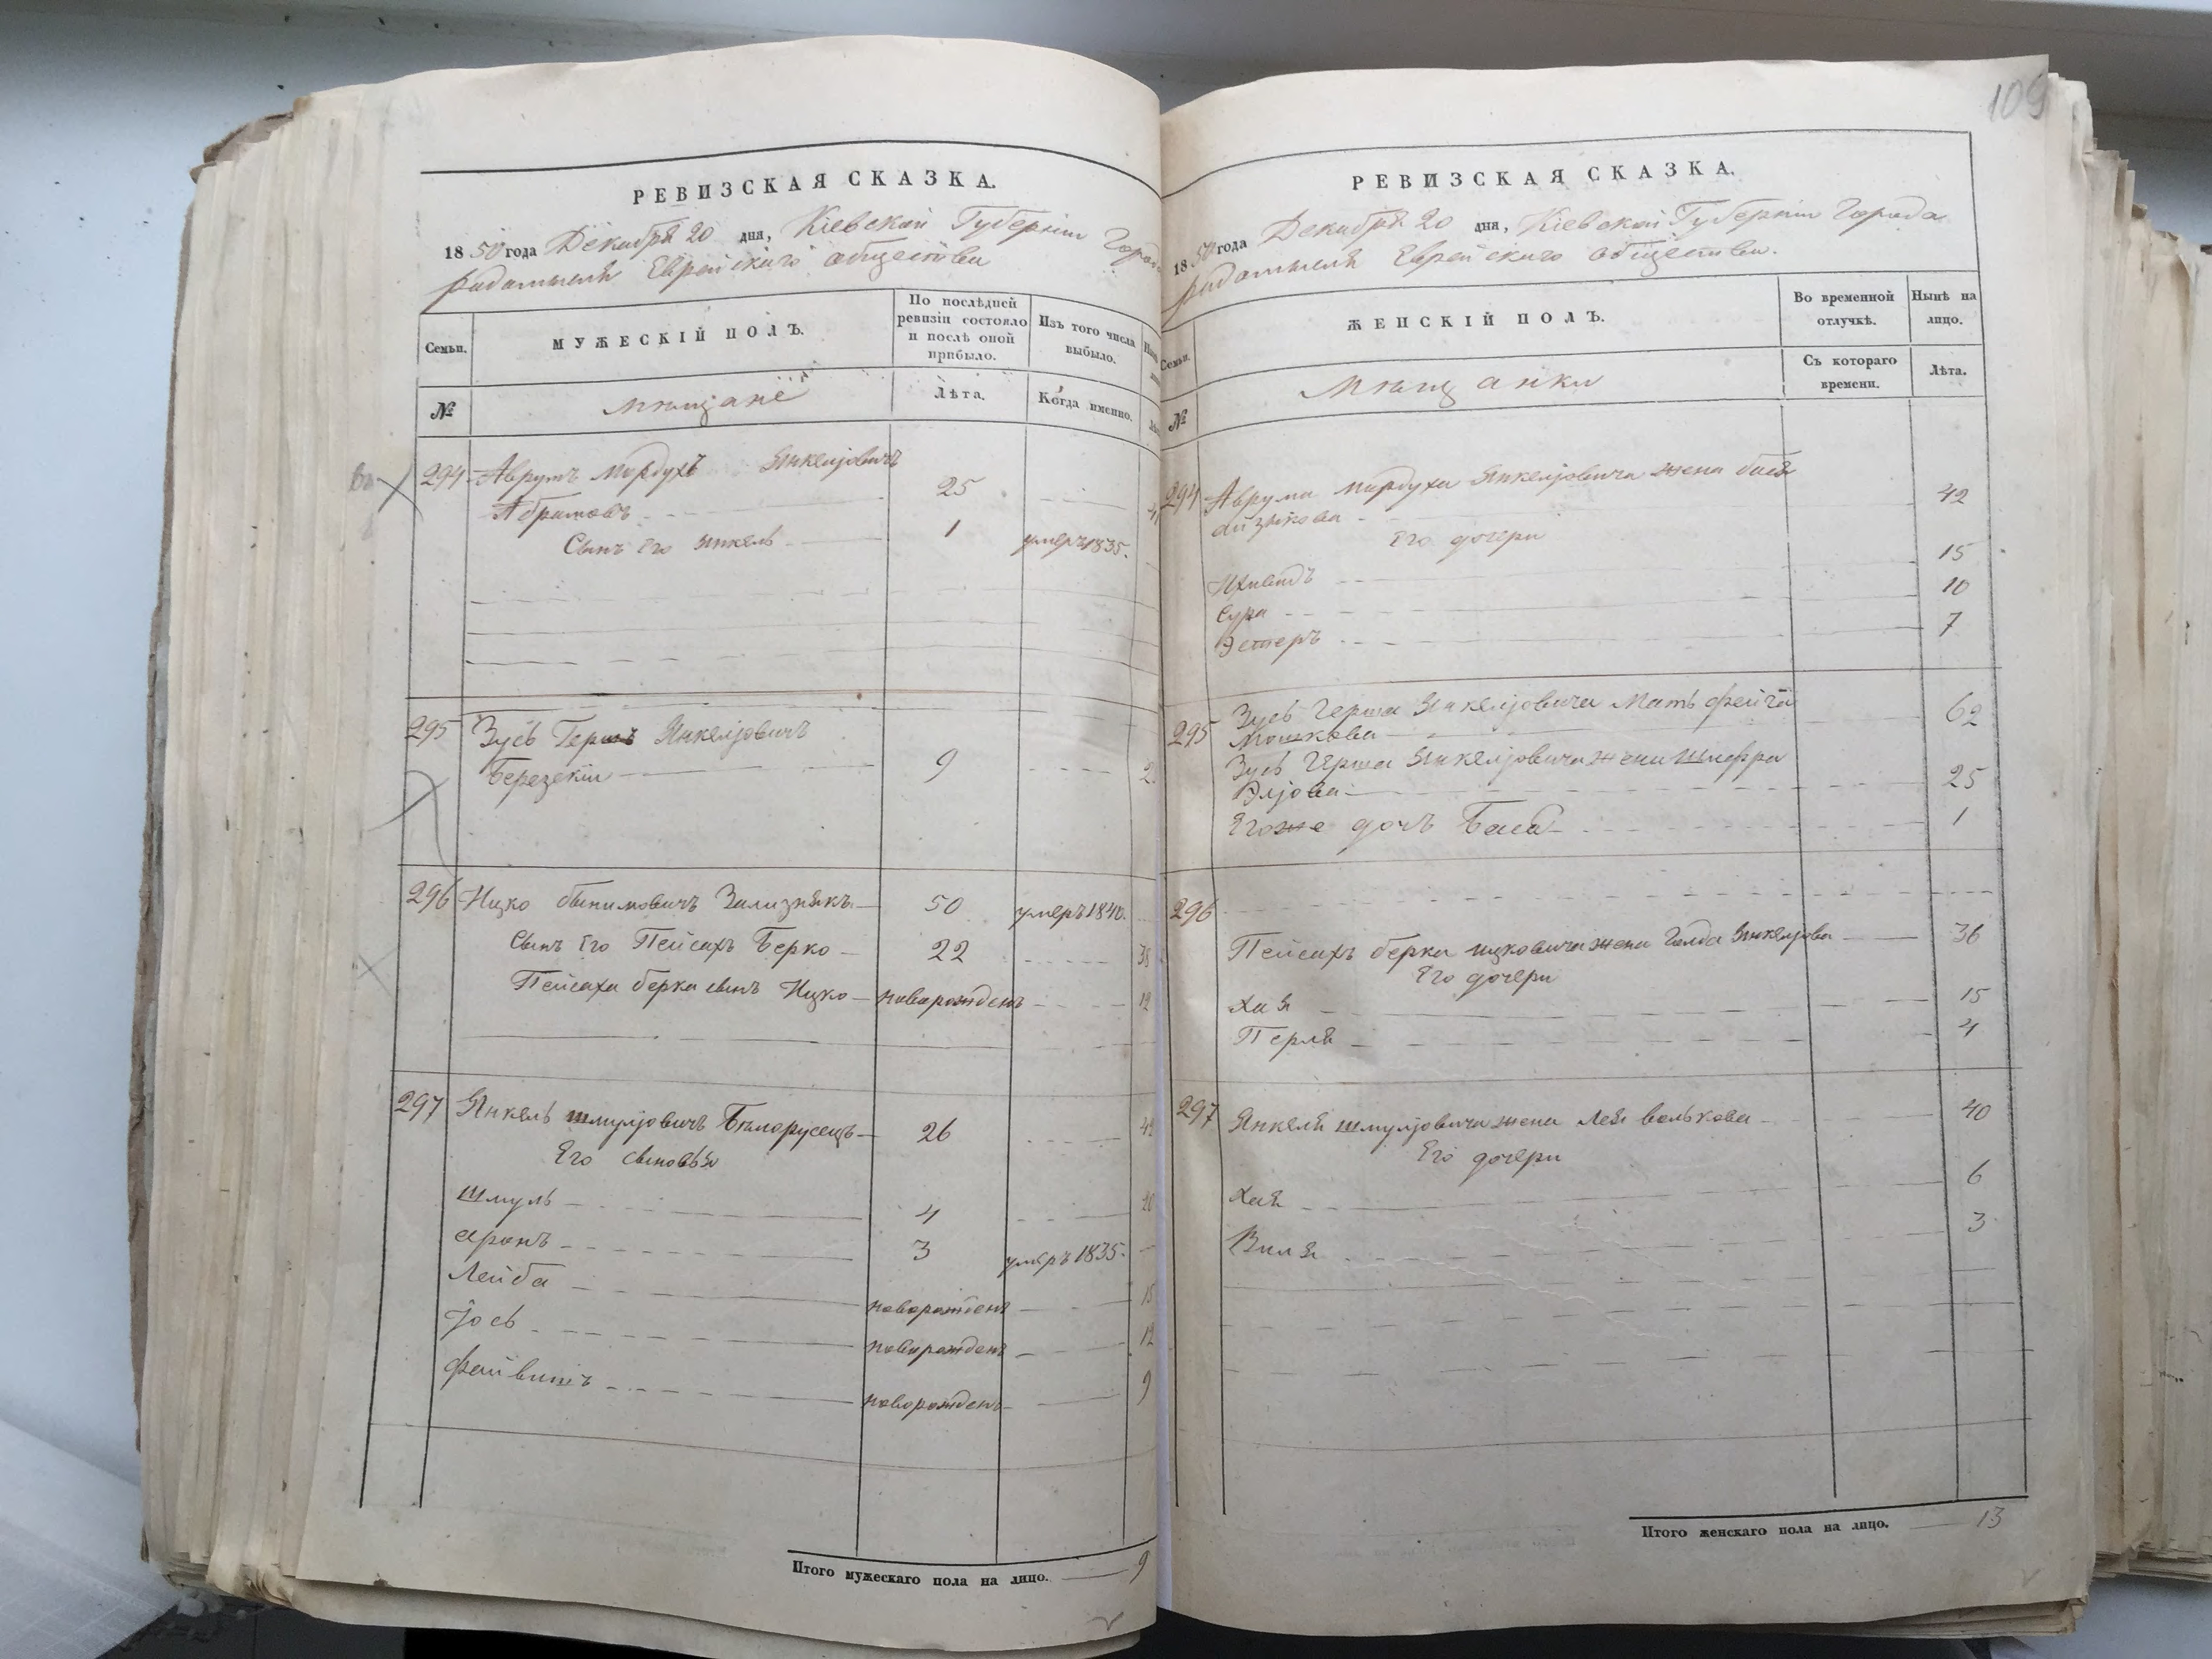 РЕВИЗСКАЯ СКАЗКА.
1850 года Декабря 20 дня, Кіевской Губерніи Города
Радомысля Еврейскаго общества
Семьи.
МУЖЕСКІЙ ПОЛЪ.
По послѣдней ревизіи состояло и послѣ оной прибыло.
Изъ того числа выбыло.
№
мѣщане
Лѣта.
Когда именно.
294 Аврумъ Мордухъ Янкелјовичъ
Абрамовъ 25
Сынъ его Янкель 1 умеръ 1835.
295 Зусь Гершъ Янкелјовичъ
Березскій 9 2
296 Ицко Бынимовичъ Зализнякъ 50 умеръ 1840.
Сынъ его Пейсахъ Берко 22 38
Пейсаха Берка сынъ Ицко новорожденъ 12
297 Янкель Шмулјовичъ Бѣлорусецъ 26
Его сыновья
Шмуль 4 20
Аронъ 3 умеръ 1835.
Лейба новорожденъ 15
Іось новорожденъ 12
Файвишъ новорожденъ 9
Итого мужескаго пола на лицо. 9
109
РЕВИЗСКАЯ СКАЗКА.
1850 года Декабря 20 дня, Кіевской Губерніи Города
Радомысля Еврейскаго общества.
Семьи.
ЖЕНСКІЙ ПОЛЪ.
Во временной отлучкѣ.
Нынѣ на лицо.
№
Мѣщанки
Съ котораго времени.
Лѣта.
294 Аврума Мордуха Янкелјовича жена Бася
Айзикова 42
Его дочери
15
Сура 10
Эстеръ 7
295 Зусь Герша Янкелјовича Мать Фейга
Мошкова 62
Зусь Герша Янкелјовича жена Шифра
Элјова 25
Егоже дочь Бася 1
296
Пейсахъ Берка Ицковича жена Голда Янкелјова 36
Его дочери
Хая 15
Перля 4
297 Янкеля Шмулјовича жена Лея Волькова 40
Его дочери
Хая 6
3
Итого женскаго пола на лицо. 13